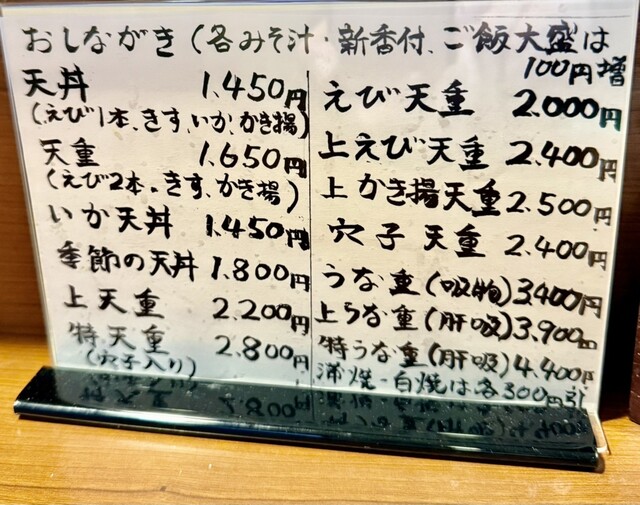 おしながき(各みそ汁・新香付、ご飯大盛は
100円増
天丼 1.450円
(えび1本、きす、いか、かき揚)
天重 1.650円
(えび2本、きす、かき揚)
いか天丼 1.450円
季節の天丼 1.800円
上天重 2.200円
特天重 2.800円
(穴子入り)
えび天重 2.000円
上えび天重 2.400円
上かき揚天重 2.500円
穴子天重 2.400円
うな重(吸物) 3.400円
上うな重(肝吸) 3.900円
特うな重(肝吸) 4.400円
蒲焼・白焼は各300円引